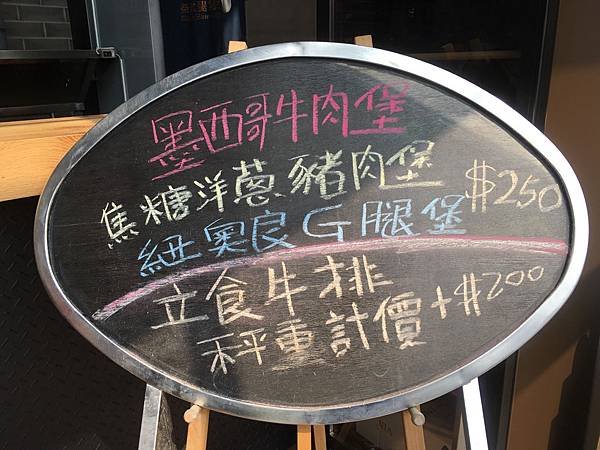 墨西哥牛肉堡
焦糖洋蔥豬肉堡 $250
紐奧良G腿堡
立食牛排
秤重計價+$200